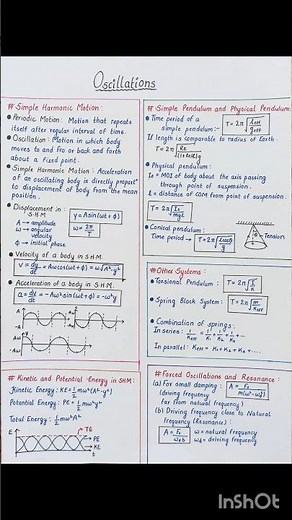 Oscillations
# Simple Harmonic Motion :
• Periodic Motion : Motion that repeats
itself after regular interval of time.
• Oscillation : Motion in which body
moves to and fro or back and forth
about a fixed point.
• Simple Harmonic Motion : Acceleration
of an oscillating body is directly propor
to displacement of body from the mean
position.
• Displacement in
S.H.M
y = A sin(ωt + ϕ)
A → amplitude
ω → angular
velocity
ω = 2π/T
ϕ → initial phase
• Velocity of a body in S.H.M :
v = dy/dt = Aω cos(ωt + ϕ) = ω√A²-y²
• Acceleration of a body in S.H.M :
a = dv/dt = -Aω² sin(ωt + ϕ) = -ω²y
# Kinetic and Potential Energy in SHM :
Kinetic Energy : KE = 1/2 mω²(A²-y²)
Potential Energy : PE = 1/2 mω²y²
Total Energy : 1/2 mω²A²
E
TE
PE
KE
t
# Simple Pendulum and Physical Pendulum:
• Time period of a
simple pendulum:-
If length is comparable to radius of Earth:
• Physical pendulum:
I₀ = MOI of body about the axis passing
through point of suspension.
l = distance of COM from point of suspension.
• Conical pendulum:
Time period →
Tension
# Other Systems:
• Torsional Pendulum :
• Spring Block System :
• Combination of springs :
In series :
In parallel :
# Forced Oscillations and Resonance :
(a) For small damping :
(driving frequency
far from natural frequency)
(b) Driving frequency close to Natural
frequency (Resonance) :
ω = natural frequency
= driving frequency
InShOt